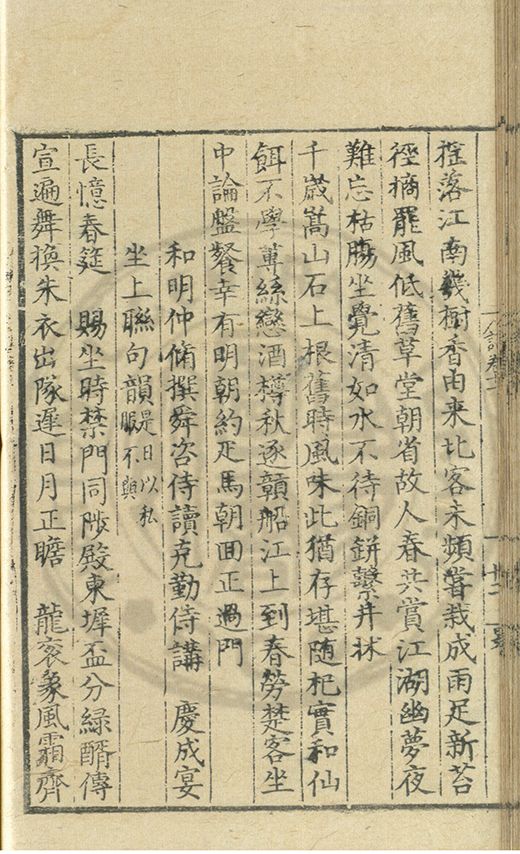 摇落江南幾樹香由来比客未頻嘗栽成雨足新苔
徑摘罷風低舊草堂朝省故人春共賞江湖幽夢夜
難忘枯腸坐覺清如水不待銅鉼繫井牀
千歲嵩山石上根舊時風味此猶存堪随杞實和仙
餌不學蓴絲戀酒樽秋逐贛船江上到春勞楚客坐
中論盤餐幸有明朝約疋馬朝回正過門
和明仲脩撰舜咨侍讀克勤侍講　慶成宴
坐上聯句韻是日以私服不與
長憶春筵　賜坐時禁門同陟殿東墀盃分綠醑傳
宣遍舞換朱衣出隊遲日月正瞻　龍袞象風霜齊